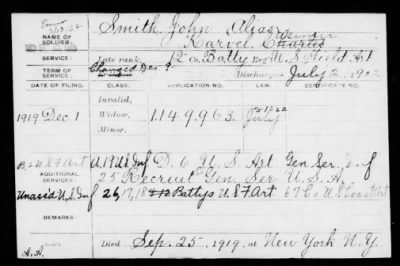 Smith, John Alias
NAME OF SOLDIER:
Darvel, Charles
SERVICE:
Late rank, 12 Co. Batty Reg't U.S. Field Art
TERM OF SERVICE:
Discharged July 2, 190
DATE OF FILING. CLASS. APPLICATION NO. LAW. CERTIFICATE NO.
Invalid,
1919 Dec 1 Widow, 1149963. July
Minor,
ADDITIONAL SERVICES:
D. 6 U. S. Art Gen Ser. Inf
25 Recruit Gen Ser U.S.A.
Unasid U.S. Inf 26, 17, 18 Battys U.S.F. Art 67 Co U.S. Coast Art
REMARKS:
Died Sep. 25, 1919, at New York N.Y.
A.A.